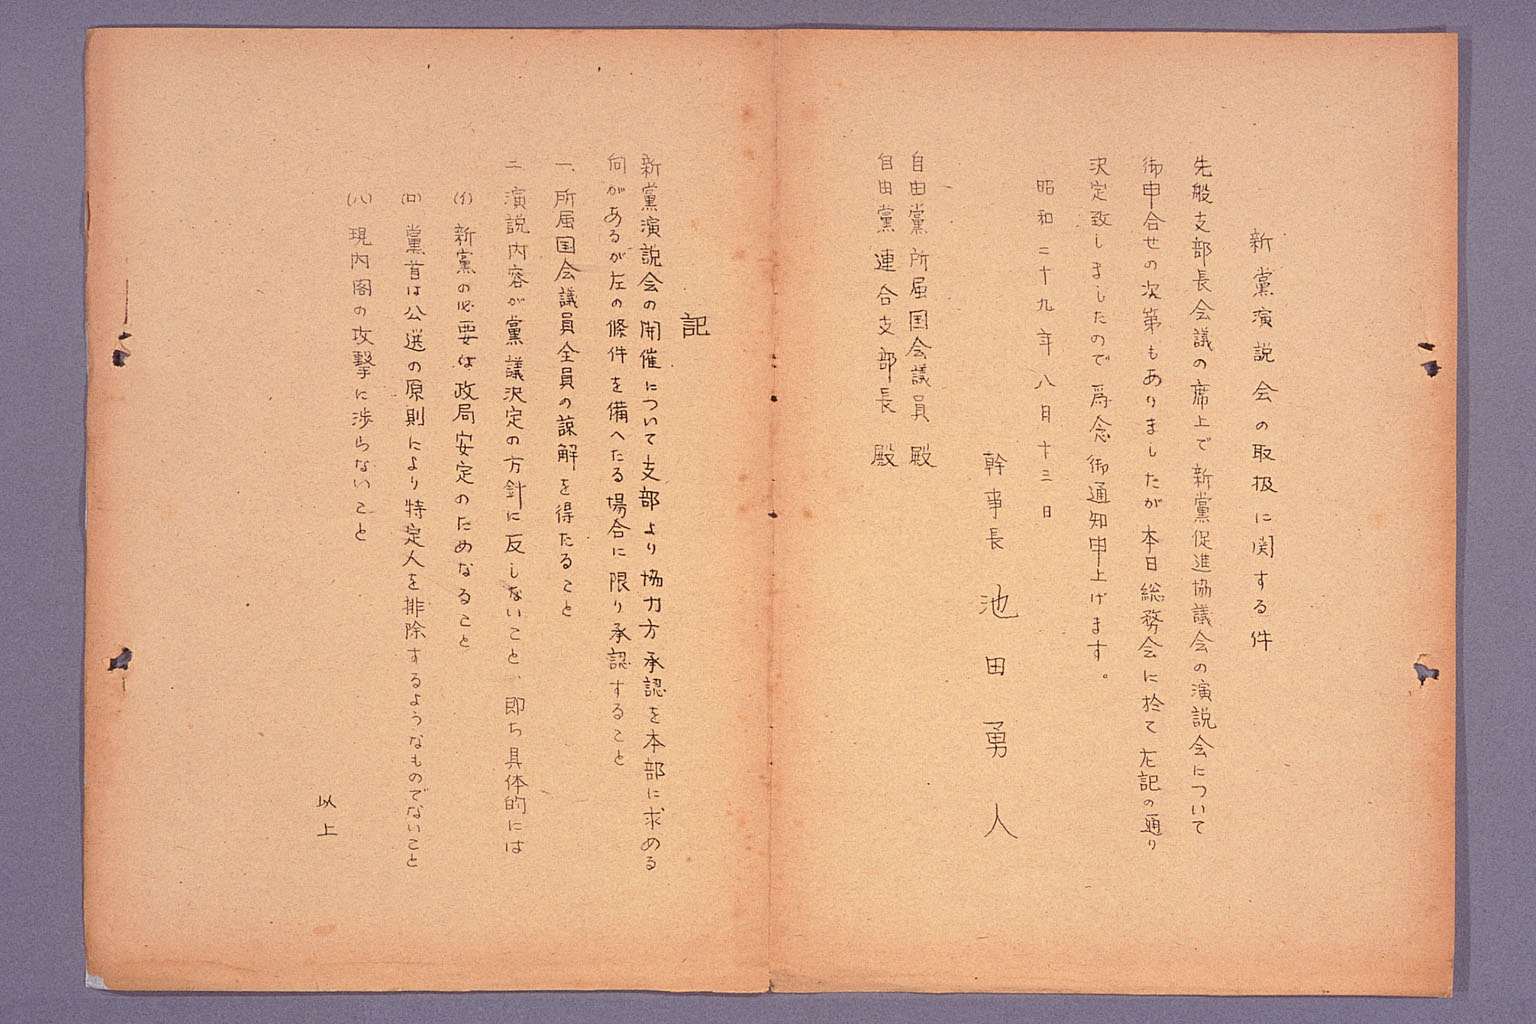 新黨演説会の取扱に関する件
先般支部長会議の席上で新黨促進協議会の演説会について
御申合せの次第もありましたが本日総務会に於て左記の通り
決定致しましたので為念御通知申上げます。
昭和二十九年八月十三日
幹事長 池田勇人
自由黨所属国会議員殿
自由黨連合支部長殿
記
新黨演説会の開催について支部より協力方承認を本部に求める
向があるが左の條件を備へたる場合に限り承認すること
一、所属国会議員全員の諒解を得たること
二 演説内容が黨議決定の方針に反しないこと、即ち具体的には
(イ) 新黨の必要は政局安定のためなること
(ロ) 黨首は公選の原則により特定人を排除するようなものでないこと
(ハ) 現内閣の攻撃に渉らないこと
以上